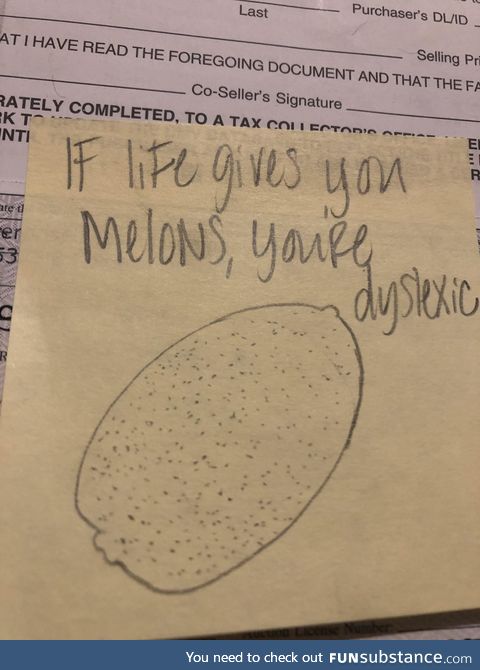 Last
Purchaser's DL/ID
AT I HAVE READ THE FOREGOING DOCUMENT AND THAT THE
Selling
Co-Seller's Signature
COMPLETED, TO A TAX COLLECTOR'S
IF life gives you
Melons, you're
dyslexic
Auction License Number:
You need to check out FUNsubstance.com